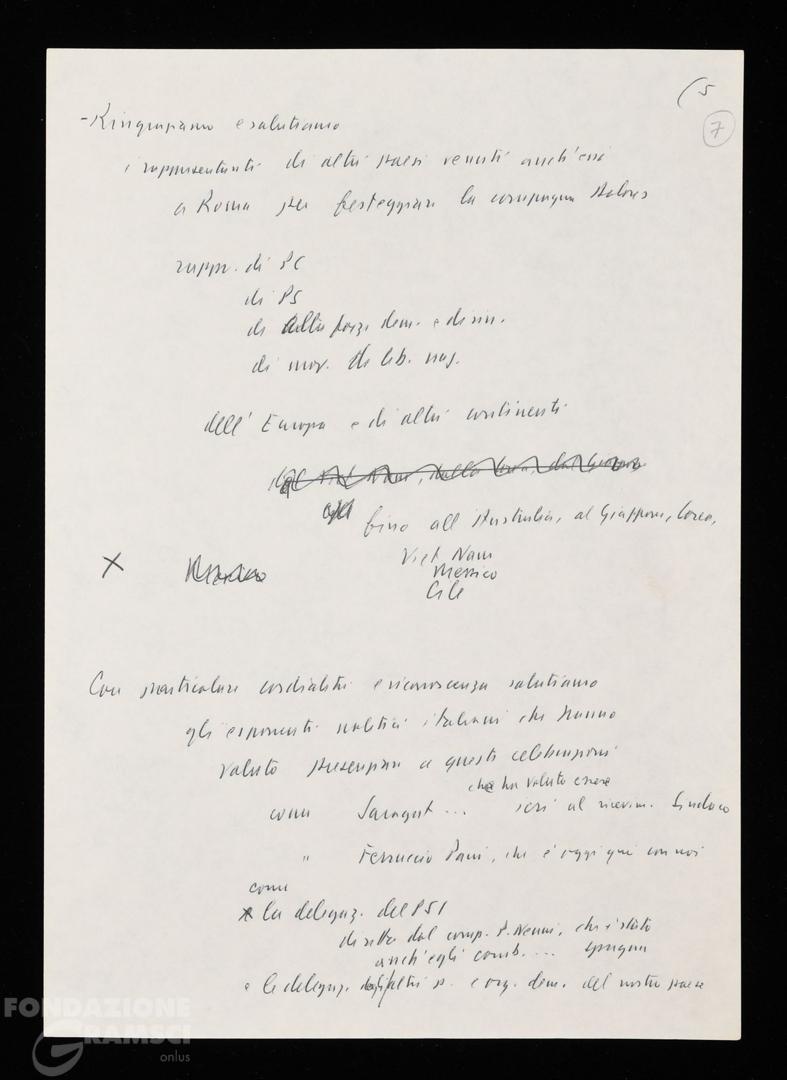 (5
7
- Ringraziamo e salutiamo
i rappresentanti di altri paesi venuti anch'essi
a Roma per festeggiare la compagna Dolores
rappr. di PC
di PS
di altre forze dem. e di sin.
di mov. di lib. naz.
dell'Europa e di altri continenti
fino all'Australia, al Giappone, Corea,
Viet Nam
X Messico
Messico
Cile
Con particolare cordialità e riconoscenza salutiamo
gli esponenti politici italiani che hanno
voluto presenziare a queste celebrazioni
che ha voluto essere
come Saragat ... ieri al ricevim. Sindaco
" Ferruccio Parri, che è oggi qui con noi
come
la delegaz. del PSI
diretta dal comp. P. Nenni, che è stato
anch'egli comb. ... Spagna
e le delegaz. degli altri p. e org. dem. del nostro paese
FONDAZIONE
GRAMSCI
onlus